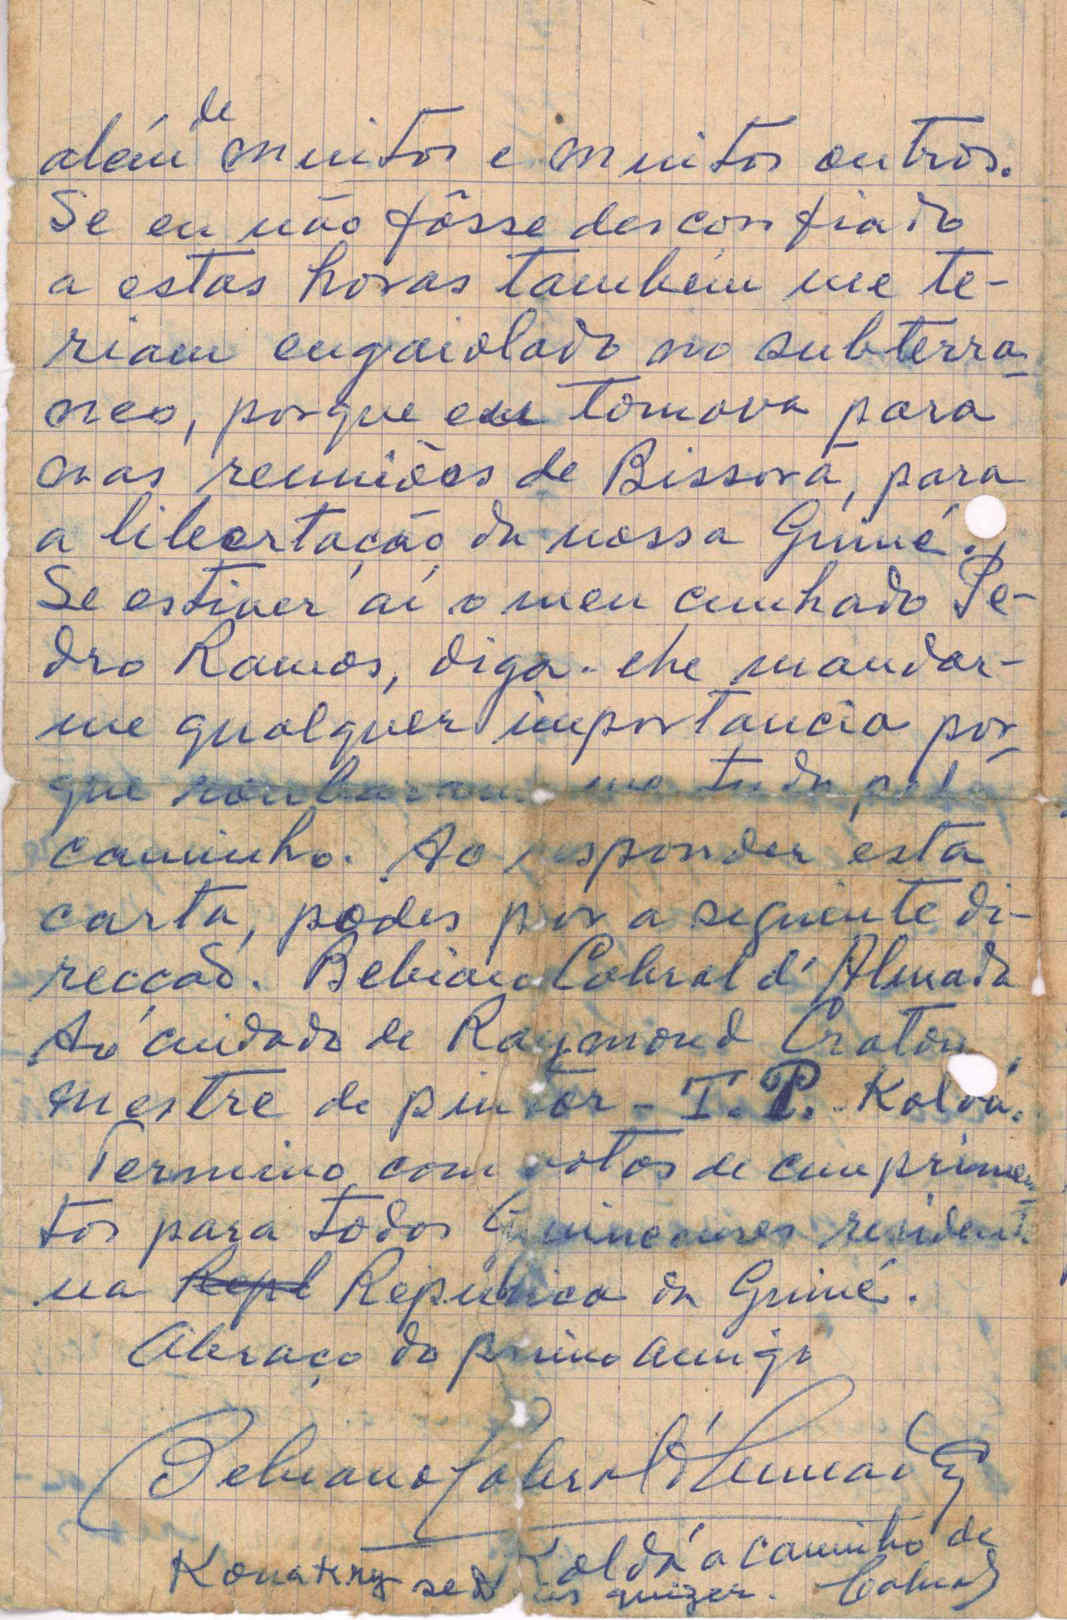 de
além muitos e muitos outros.
Se eu não fôsse desconfiado
a estas horas também me te-
riam engaiolado no subterra-
neo, porque eu tomava para
nas reuniões de Bissorã, para
a libertação da nossa Guiné.
Se estiver aí o meu cunhado Pe-
dro Ramos, diga-lhe mandar-
me qualquer importancia por-
que roubaram-me tudo pelo
caminho. Ao responder esta
carta, podes por a seguinte di-
recção. Bebiano Cabral d'Almada
Ao cuidado de Raymond Craton,
mestre de pintor - T.P. - Koldá.
Termino com votos de cumprimen-
tos para todos Guineenses resident.
na Repl República da Guiné.
Abraço do primo amigo
Bebiano Cabral d'Almada
Koldá a caminho de
Konakry se Deus quizer. Cabral